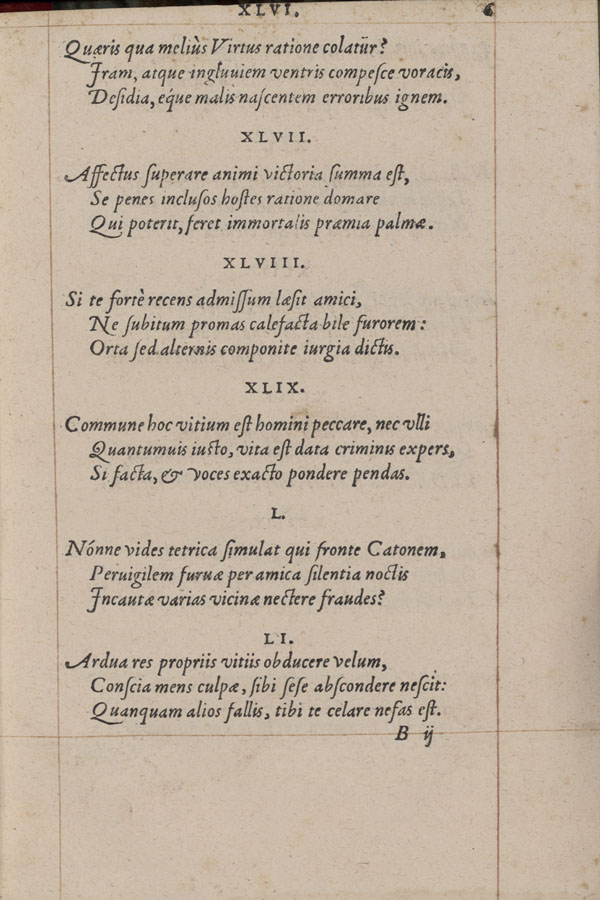 XLVI. 6
Quæris qua meliùs Virtus ratione colatur?
Iram, atque ingluuiem ventris compeſce voracis,
Deſidia, eque malis naſcentem erroribus ignem.
XLVII.
Affectus ſuperare animi victoria ſumma eſt,
Se penes incluſos hoſtes ratione domare
Qui poterit, feret immortalis præmia palmæ.
XLVIII.
Si te fortè recens admiſſum læſit amici,
Ne ſubitum promas calefacta bile furorem:
Orta ſed alternis componite iurgia dictis.
XLIX.
Commune hoc vitium eſt homini peccare, nec vlli
Quantumuis iuſto, vita eſt data criminis expers,
Si facta, & voces exacto pondere pendas.
L.
Nónne vides tetrica ſimulat qui fronte Catonem,
Peruigilem furuæ per amica ſilentia noctis
Incautæ varias vicinæ nectere fraudes?
LI.
Ardua res propriis vitiis obducere velum,
Conſcia mens culpæ, ſibi ſeſe abſcondere neſcit:
Quanquam alios fallis, tibi te celare nefas eſt.
B ij